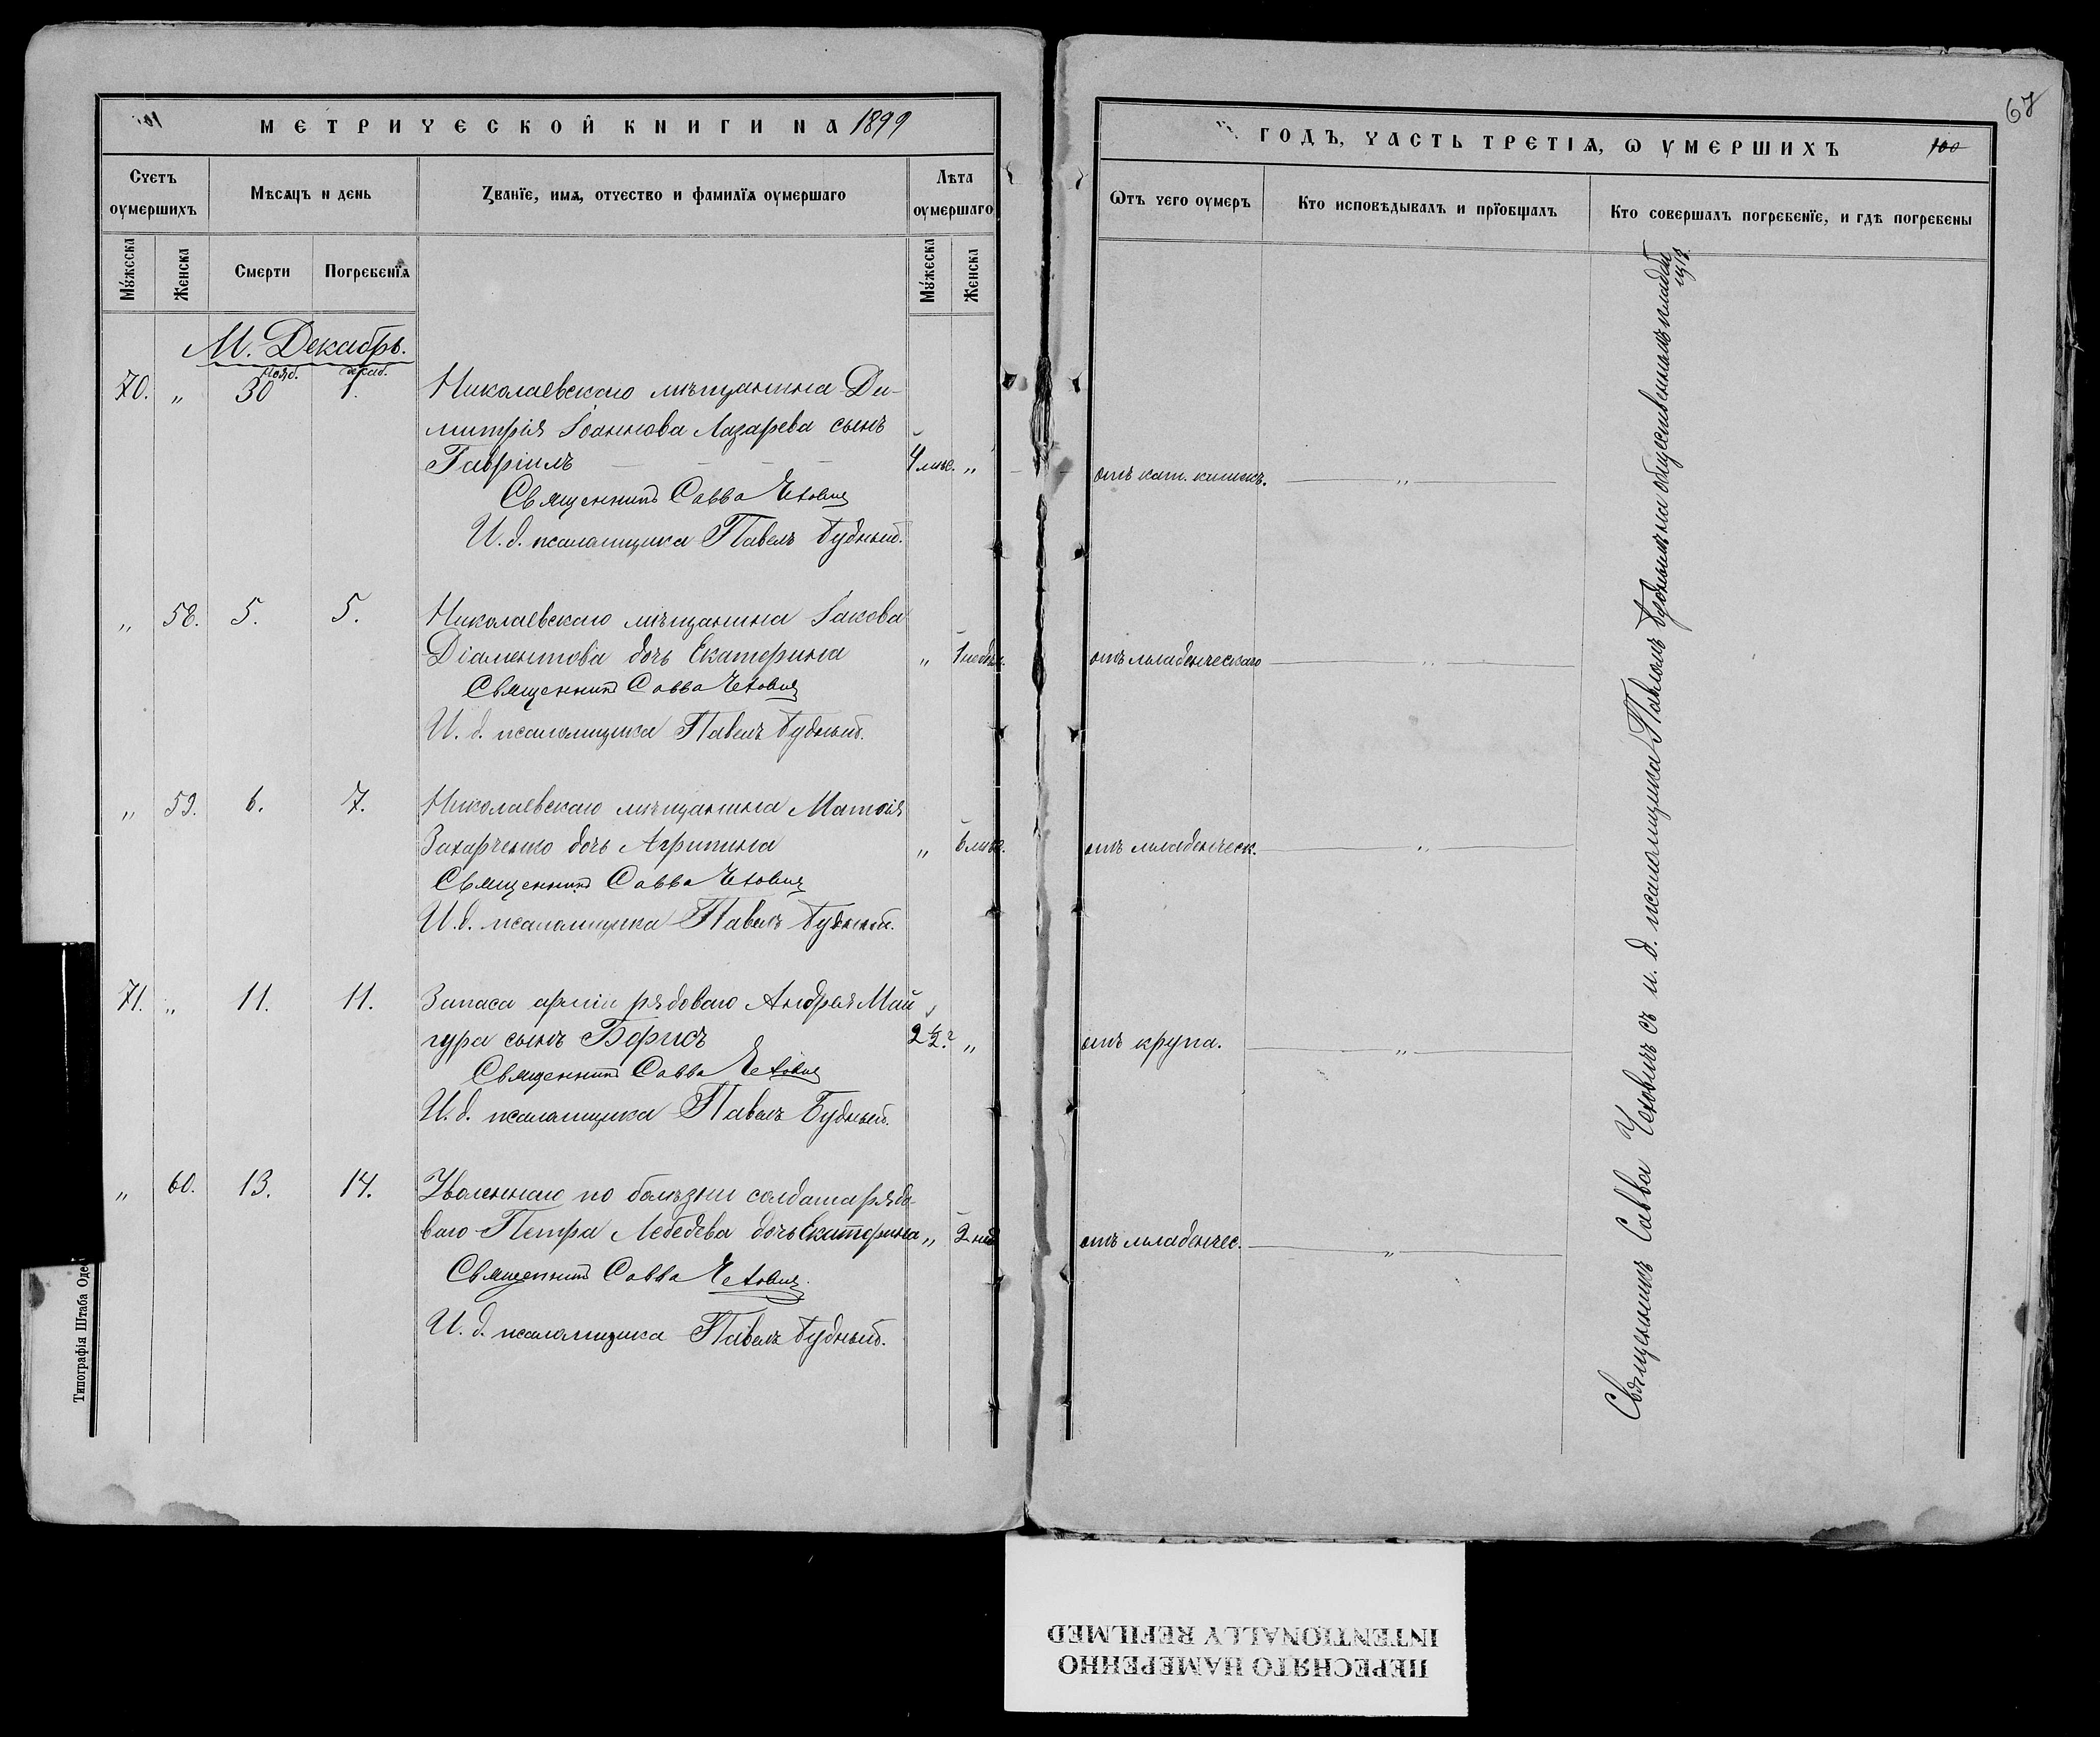 МЕТРИЧЕСКОЙ КНИГИ НА 1899
Счетъ оумершихъ
Мѣсяцъ и день
Званїе, имя, отчество и фамилїя оумершаго
Лѣта оумершаго
Мужеска
Женска
Смерти
Погребенїя
Мужеска
Женска
М. Декабрь.
Нояб. декаб.
70. „ 30 1. Николаевскаго мѣщанина Ди-
митрія Іоаннова Лазарева сынъ
Гавріилъ 4 мѣс. „
Священникъ Савва Чехович
И. д. псаломщика Павелъ Будный.
„ 58. 5. 5. Николаевскаго мѣщанина Іакова
Діаментова дочь Екатерина „ 1 недѣл.
Священникъ Савва Чехович
И. д. псаломщика Павелъ Будный.
„ 59. 6. 7. Николаевскаго мѣщанина Матѳія
Захарченко дочь Агрипина „ 6 мѣс.
Священникъ Савва Чехович
И. д. псаломщика Павелъ Будный.
71. „ 11. 11. Запаса арміи рядоваго Андрея Май
гура сынъ Борисъ 2½ г „
Священникъ Савва Чехович
И. д. псаломщика Павелъ Будный.
„ 60. 13. 14. Уволеннаго по болѣзни солдата рядо-
ваго Петра Лебедева дочь Екатерина „ 2 нед
Священникъ Савва Чехович.
И. д. псаломщика Павелъ Будный.
Типографія Штаба Одес
67
ГОДЪ, ЧАСТЬ ТРЕТІЯ, Ѡ УМЕРШИХЪ 100
Ѿтъ чего оумеръ
Кто исповѣдывалъ и прїобщалъ
Кто совершалъ погребенїе, и гдѣ погребены
отъ кат. кишекъ. „
отъ младенческаго „
отъ младенческ. „
отъ крупа. „
отъ младенчес. „
Священникъ Савва Чеховичъ съ и. д. псаломщика Павломъ Буднымъ на общественномъ кладби
щѣ
ПЕРЕСНЯТО НАМЕРЕННО
INTENTIONALLY REFILMED